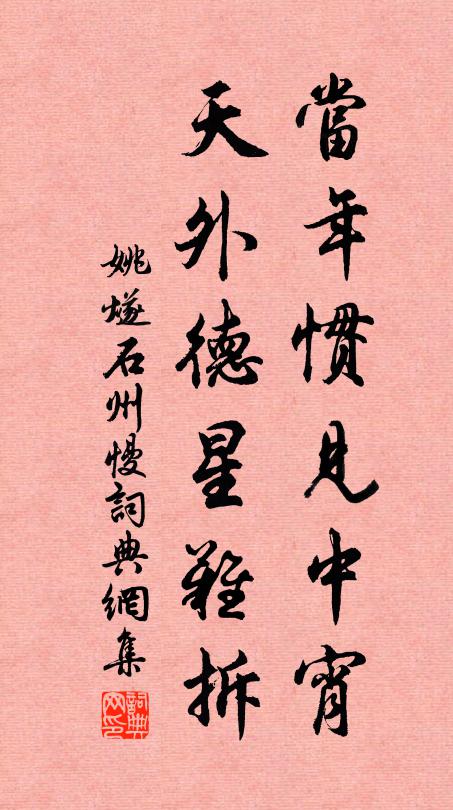 當年慣見中宵
天外德星難拆
姚燧石州慢詞典網集
詞典网印